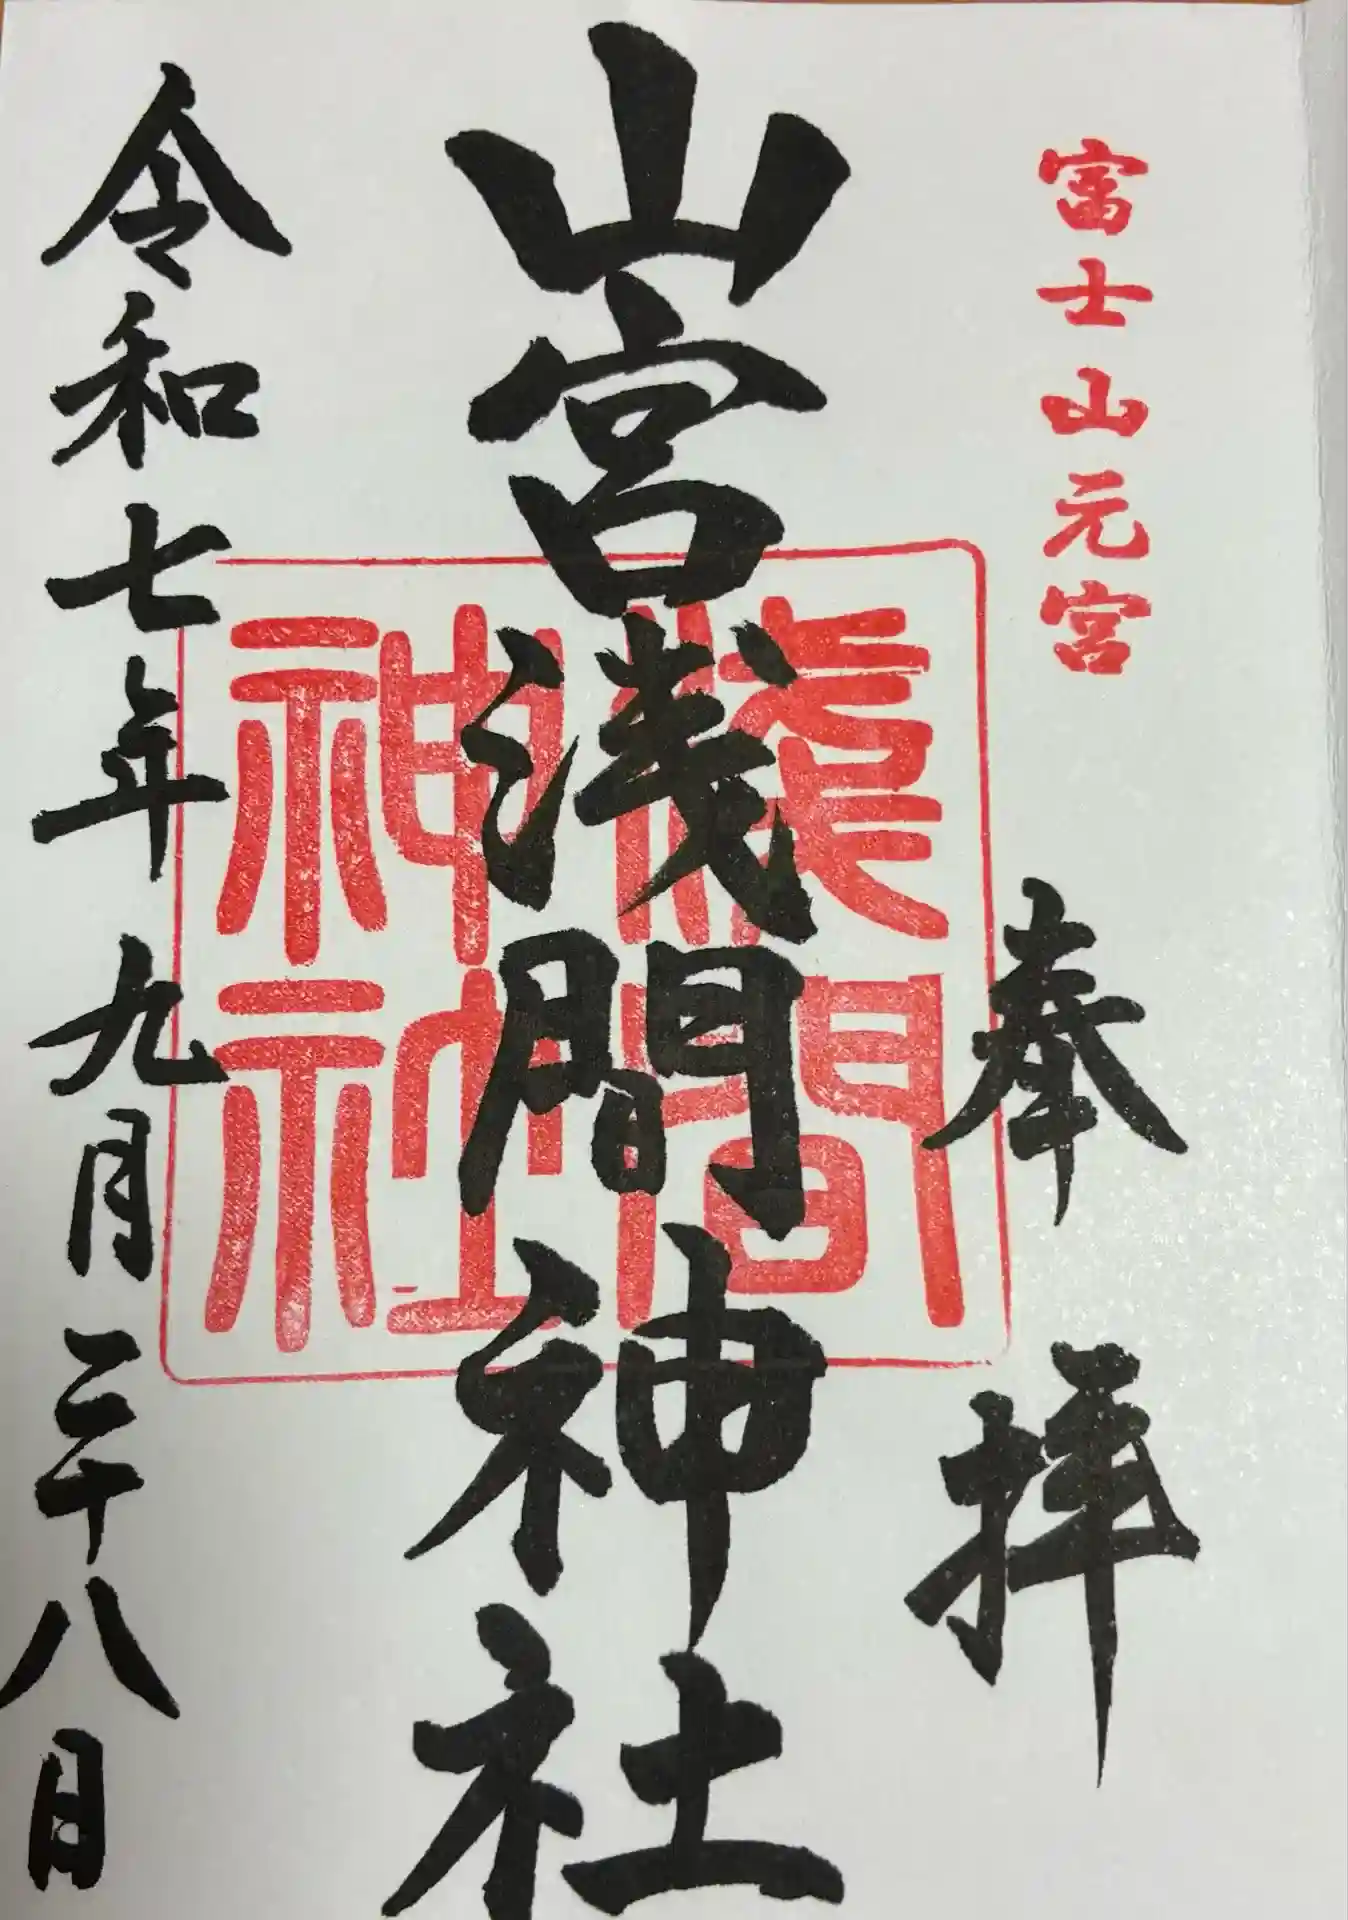 富士山元宮
奉拝
山宮浅間神社
浅間
神社
令和七年九月二十八日